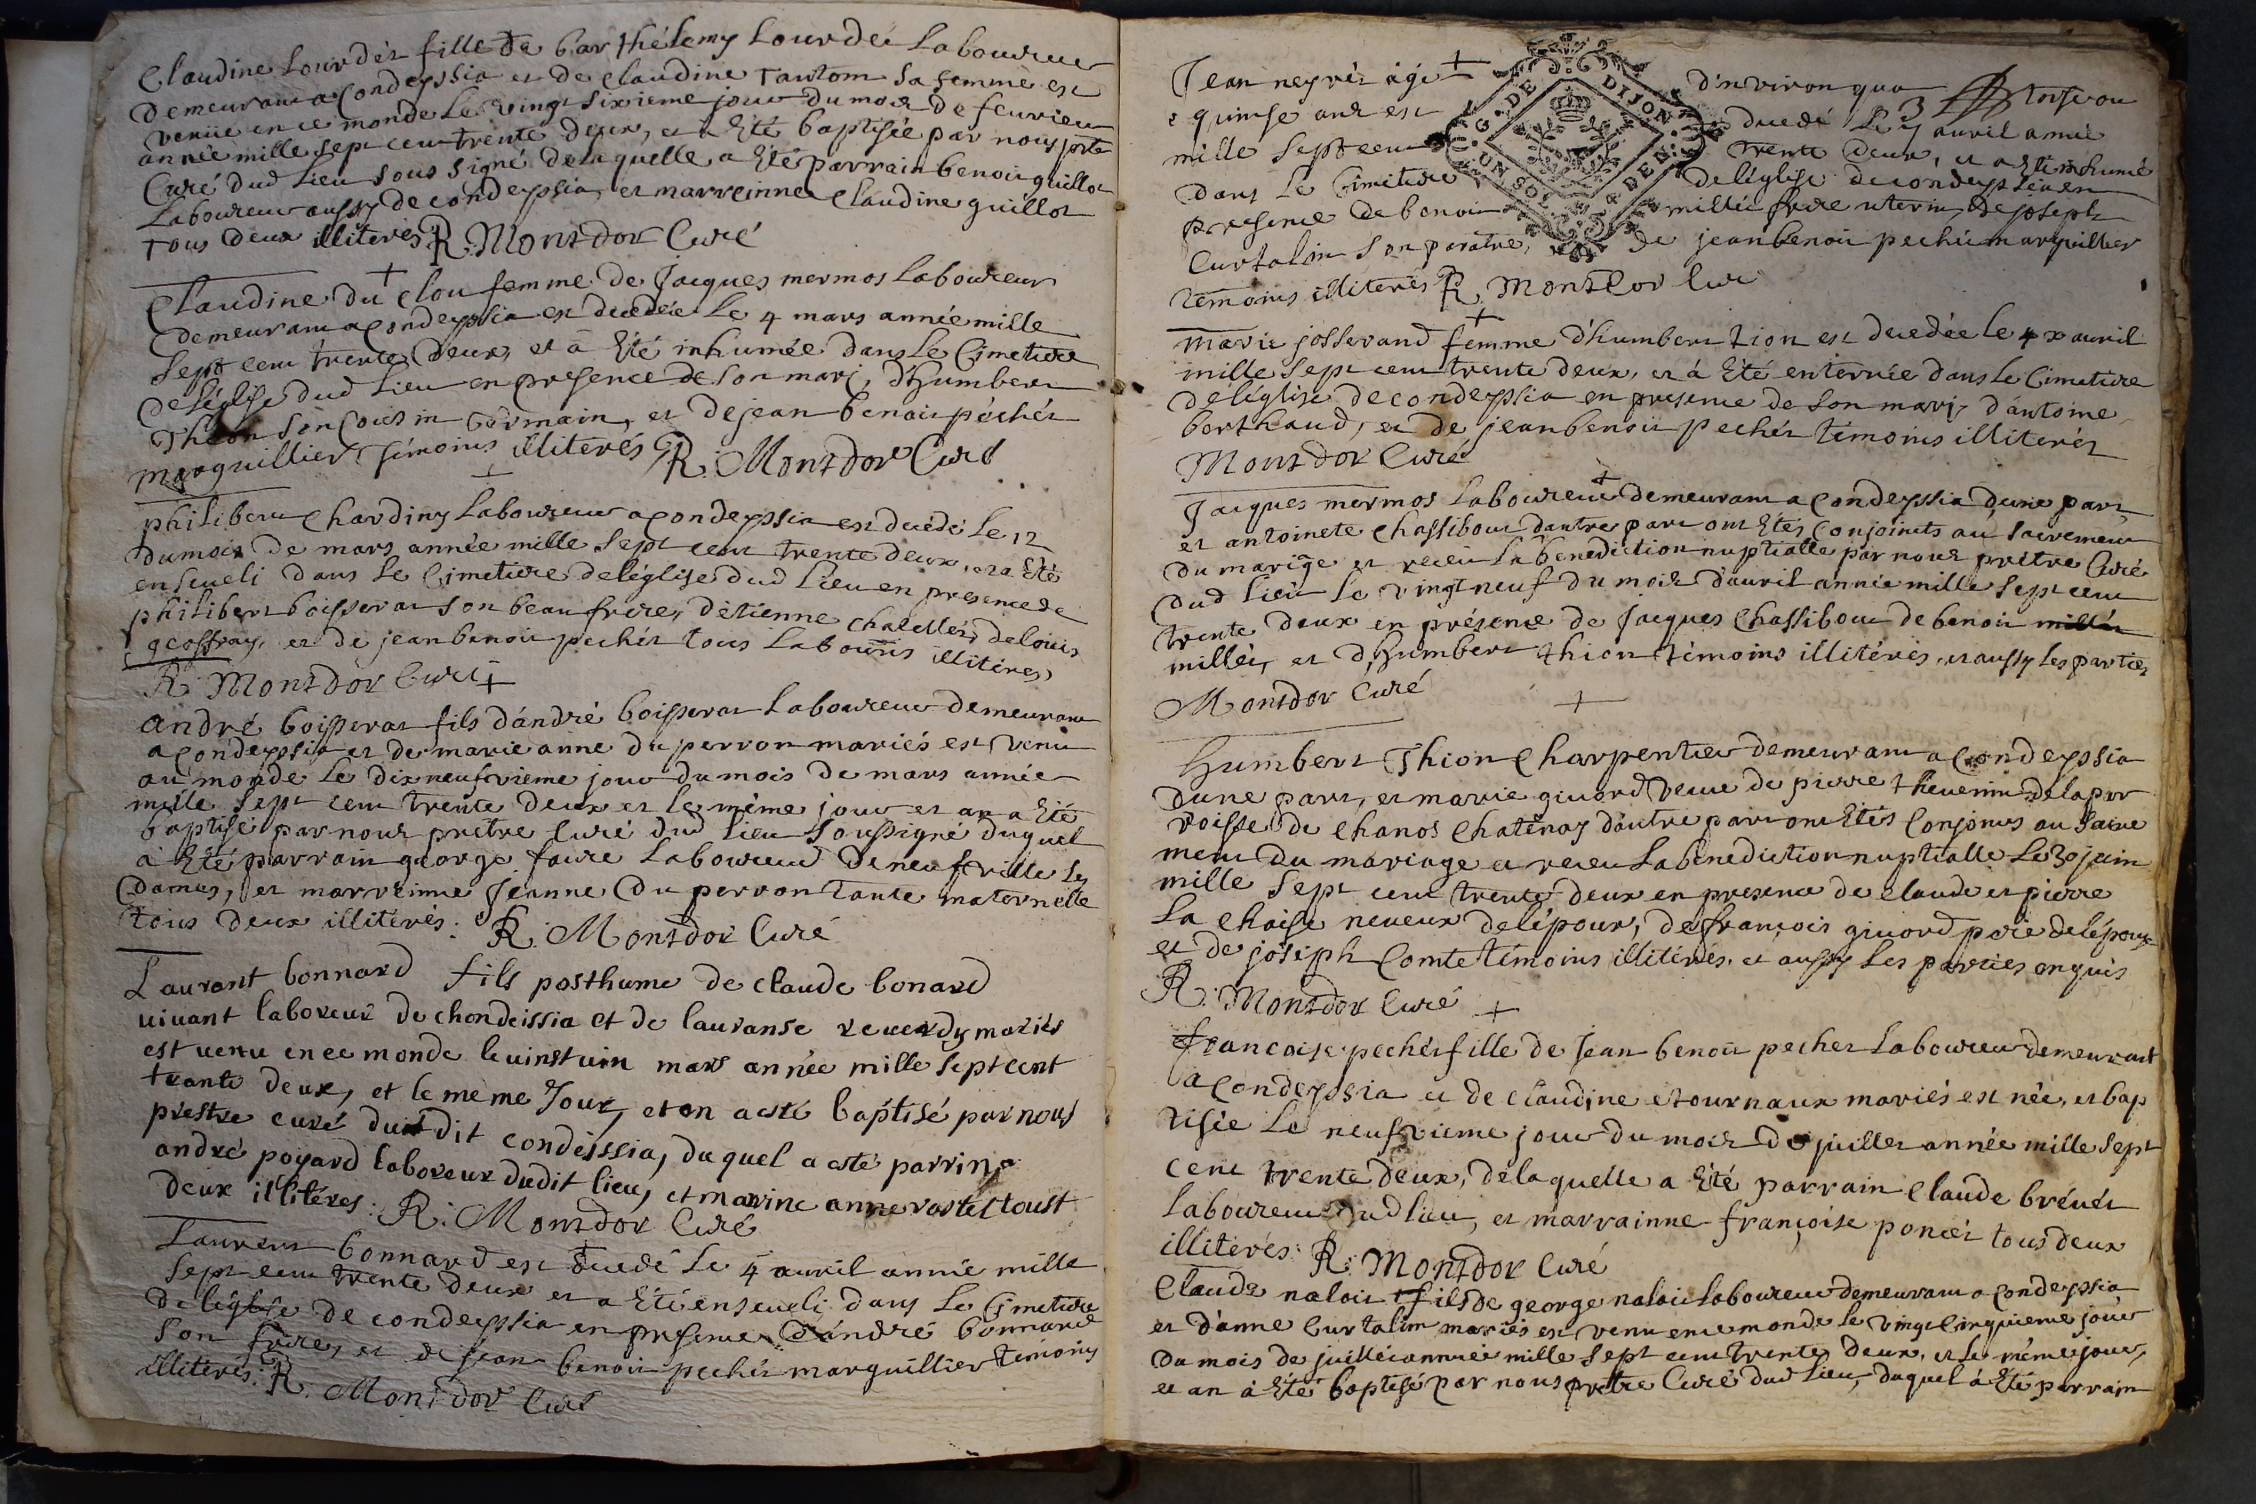 Claudine Lourdet fille de barthélemy Lourdet Laboureur
demeurant a Condeyssia et de Claudine tantom sa femme est
venue en ce monde le vingt sixieme jour du mois de feuvrier
année mille sept cent trente deux, et a Eté baptisée par nous prètre
Curé dud lieu sous signé de laquelle a Eté parrain benoit guillot
Laboureur aussy de condeyssia, et marreinne Claudine guillot
tous deux illiterés R. Montdor Curé
Claudine du Clou femme de Jacques mermos Laboureur
demeurant a Condeyssia est decedée Le 4 mars année mille
Sept cent trente deux, et a Eté inhumée dans Le Cimetiere
de l'église dud Lieu en presence de son mari, d'humbert
Thion son cousin Germain, et de jean benoit pechét
marguillier témoins illiterés R. Montdor Curé
philibert Chardiny Laboureur a condeyssia est decedé Le 12
du mois de mars année mille Sept cent trente deux, et a Eté
enseveli dans Le Cimetiere de léglise dud Lieu en presence de
philibert boisserat son beau frere, détienne chatellet, de louis
geoffray, et de jean benoit pechét tous Labourrs illitérés
R. Montdor Curé
André boisserat fils d'andré boisserat Laboureur demeurant
a Condeyssia et de marie anne du perron mariés est venu
au monde le dixneufvieme jour du mois de mars année
mille Sept cent trente deux et le mème jour et an a Eté
baptisé par nous prètre Curé dud Lieu soussigné duquel
a Eté parrain george faure Laboureur de neufville Les
Dames, et marreinne Jeanne Du perron tante maternelle
tous deux illiterés. R. Montdor Curé
Laurant bonnard fils posthume de claude bonard
vivant laboreur de chondeissia et de lauranse reverdy mariés
est venu en ce monde le vinst uin mars année mille sept cent
trante deux, et le meme Jour, et on a esté baptisé par nous
prestre curé du dit condeissia, du quel a esté parrin
andré poyard laboreur dudit lieu, et marine anne rastel toust
deux illitéres. R. Montdor Curé
Laurent bonnard est decedé Le 4 avril année mille
Sept cent trente deux et a Eté enseveli dans Le Cimetiere
de léglise de condeyssia en presence d'andré bonnard
son frere, et de jean benoit pechét marguillier témoins
illiterés. R. Montdor Curé
Jean neyrét agé d'environ qua
3
torse ou
quinse ans est decedé Le 3 avril année
mille Sept cent trente deux, et a Eté inhumé
dans Le Cimetiere de léglise de condeyssia en
presence de benoit millét frere uterin, de joseph
Curtalin son paratre, de jean benoit pechét marguillier
témoins illiterés R. Montdor Curé
G. DE DIJON
UN SOL 4 DEN.
Marie josserand femme d'humbert tion est decedée le 4 avril
mille Sept cent trente deux, et a Eté enterrée dans Le Cimetiere
de léglise de condeyssia en presence de son mari, d'antoine
berthaud, et de jean benoit pechét témoins illiterés
Montdor Curé
Jacques mermos Laboureur demeurant a Condeyssia d'une part
et antoinete Chassibout d'autre part ont Etés Conjoints au sacrement
du mariage et receu La benediction nuptialle par nous prètre Curé
Dud Lieu Le vingt neuf du mois d'avril année mille sept cent
trente deux en présence de Jacques Chassibout de benoit millét
millét, et d'humbert thion témoins illitérés, et aussy les parties
Montdor Curé
Humbert Thion Charpentier demeurant a Condeyssia
d'une part, et marie givord veuve de pierre thevenin de la par
roisse de Chanos Chatenay d'autre part ont Etés Conjoins au sacre
ment du mariage et receu La benediction nuptialle Le 30 juin
mille Sept cent trente deux en presence de claude et pierre
La Chaise neveux de l'époux, de françois givord pere de lépouse
et de joseph Comte témoins illitérés, et aussy Les parties enquis
R. Montdor Curé
francoise pechét fille de Jean benoit pechet Laboureur demeurant
a Condeyssia et de claudine etournaux mariés est née, et bap
tisée Le neufvieme jour du mois de juillet année mille Sept
cent trente deux, de laquelle a Eté parrain Claude brévét
Laboureur dud lieu, et marrainne françoise poncét tous deux
illiterés. R. Montdor Curé
Claude naloit fils de george naloit Laboureur demeurant a Condeyssia
et d'anne Curtalin mariés est venu en ce monde le vingt Cinquieme jour
du mois de juillét année mille Sept cent trente deux, et Le mème jour,
et an a Eté baptisé par nous prètre Curé dud Lieu, duquel a Eté parrain